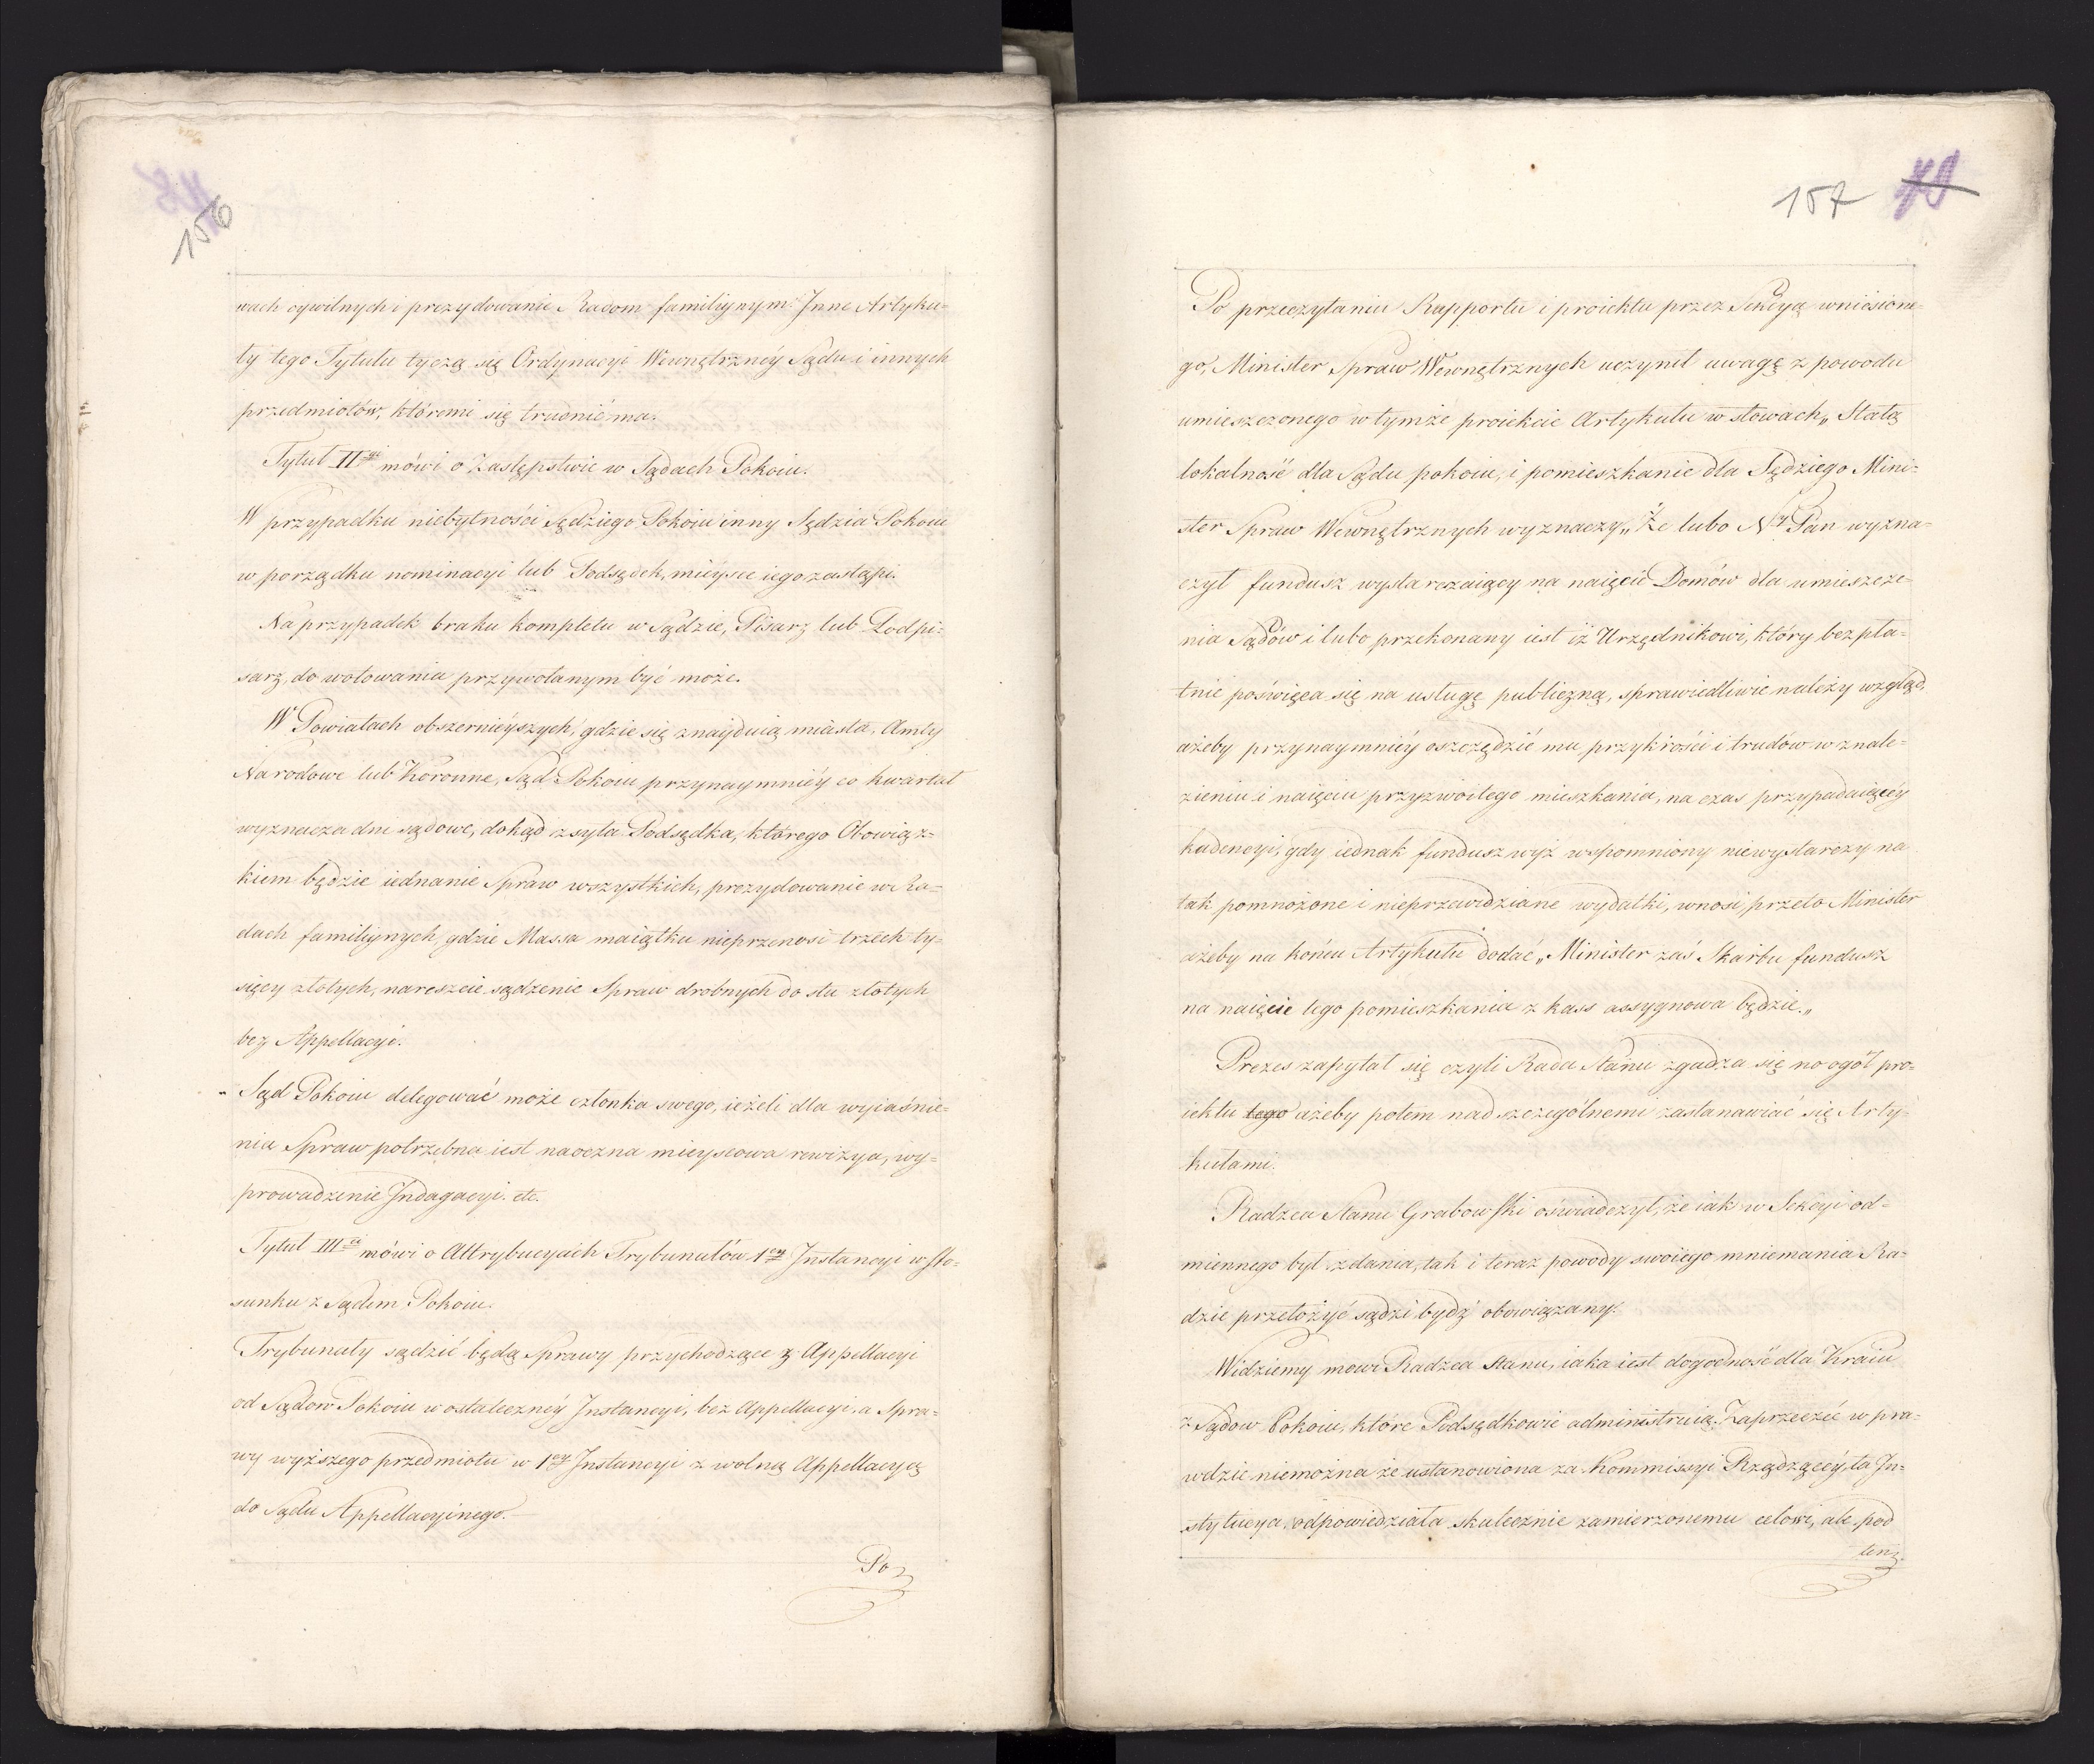 156
wach cywilnych i prezydowanie Radom familiynym. Jnne Artyku-
ły tego Tytułu tyczą się Ordynacyi Wewnętrznéy Sądu i innych
przedmiotów, któremi się trudnić ma.
Tytuł II<sup>gi</sup> mówi o Zastępstwie w Sądach Pokoiu.
W przypadku niebytności Sędziego Pokoiu inny Sędzia Pokoiu
w porządku nominacyi lub Podsędek, mieysce iego zastąpi.
Na przypadek braku kompletu w Sądzie, Pisarz lub Podpi-
sarz, do wotowania przywołanym być może.
W Powiatach obszernieyszych, gdzie się znayduią miasta, Amty
Narodowe lub Koronne, Sąd Pokoiu przynaymniéy co kwartał
wyznacza dni sądowe, dokąd zsyła Podsędka, którego Obowiąz-
kiem będzie iednanie Spraw wszystkich, prezydowanie w Ra-
dach familiynych, gdzie Massa maiątku nieprzenosi trzech ty-
sięcy złotych, nareszcie sądzenie Spraw drobnych do stu złotych
bez Appellacyi.
Sąd Pokoiu delegować może członka swego, ieżeli dla wyiaśnie-
nia Spraw potrzebna iest naoczna mieyscowa rewizya, wy-
prowadzenie Jndagacyi. etc.
Tytuł III<sup>ci</sup> mówi o Attrybucyach Trybunałów 1<sup>ey</sup> Jnstancyi w sto-
sunku z Sądem Pokoiu.
Trybunały sądzić będą Sprawy przychodzące z Appellacyi
od Sądow Pokoiu w ostateczněy Jnstancyi, bez Appellacyi, a Spra-
wy wyższego przedmiotu w 1<sup>ey</sup> Jnstancyi z wolną Appellacyą
do Sądu Appellacyinego. —
Po
157
Po przeczytaniu Rapportu i proiektu przez Sekcyą wniesione-
go, Minister Spraw Wewnętrznych uczynił uwagę z powodu
umieszczonego w tymże proiekcie Artykułu w słowach „Stałą
lokalność dla Sądu pokoiu, i pomieszkanie dla Sędziego Mini-
ster Spraw Wewnętrznych wyznaczy„ Że lubo N<sup>y</sup> Pan wyzna-
czył fundusz wystarczaiący na naięcie Domów dla umieszcze-
nia Sądów i lubo przekonany iest iż Urzędnikowi, który bezpła-
tnie poświęca się na usługę publiczną, sprawiedliwie należy wzgląd,
ażeby przynaymniéy oszczędzić mu przykrości i trudów w znale-
zieniu i naięciu przyzwoitego mieszkania, na czas przypadaiącéy
kadencyi, gdy iednak fundusz wyż wspomniony niewystarczy na
tak pomnożone i nieprzewidziane wydatki, wnosi przeto Minister
ażeby na końcu Artykułu dodać „Minister zaś Skarbu fundusz
na naięcie tego pomieszkania z kass assygnowa będzie.„
Prezes zapytał się czyli Rada Stanu zgadza się no ogół pro-
iektu tego ażeby potem nad szczególnemi zastanawiać się Arty-
kułami.
Radzca Stanu Grabowski oświadczył, że iak w Sekcyi od-
miennego był zdania, tak i teraz powody swoiego mniemania Ra-
dzie przełożyć sądzi bydź obowiązany.
Widziemy mowi Radzca Stanu, iaka iest dogodność dla Kraiu
z Sądow Pokoiu, które Podsędkowie administruią. Zaprzeczić w pra-
wdzie niemożna że ustanowiona za Kommissyi Rządzącéy, ta Jn-
stytucya, odpowiedziała skutecznie zamierzonemu celowi, ale pod
tem